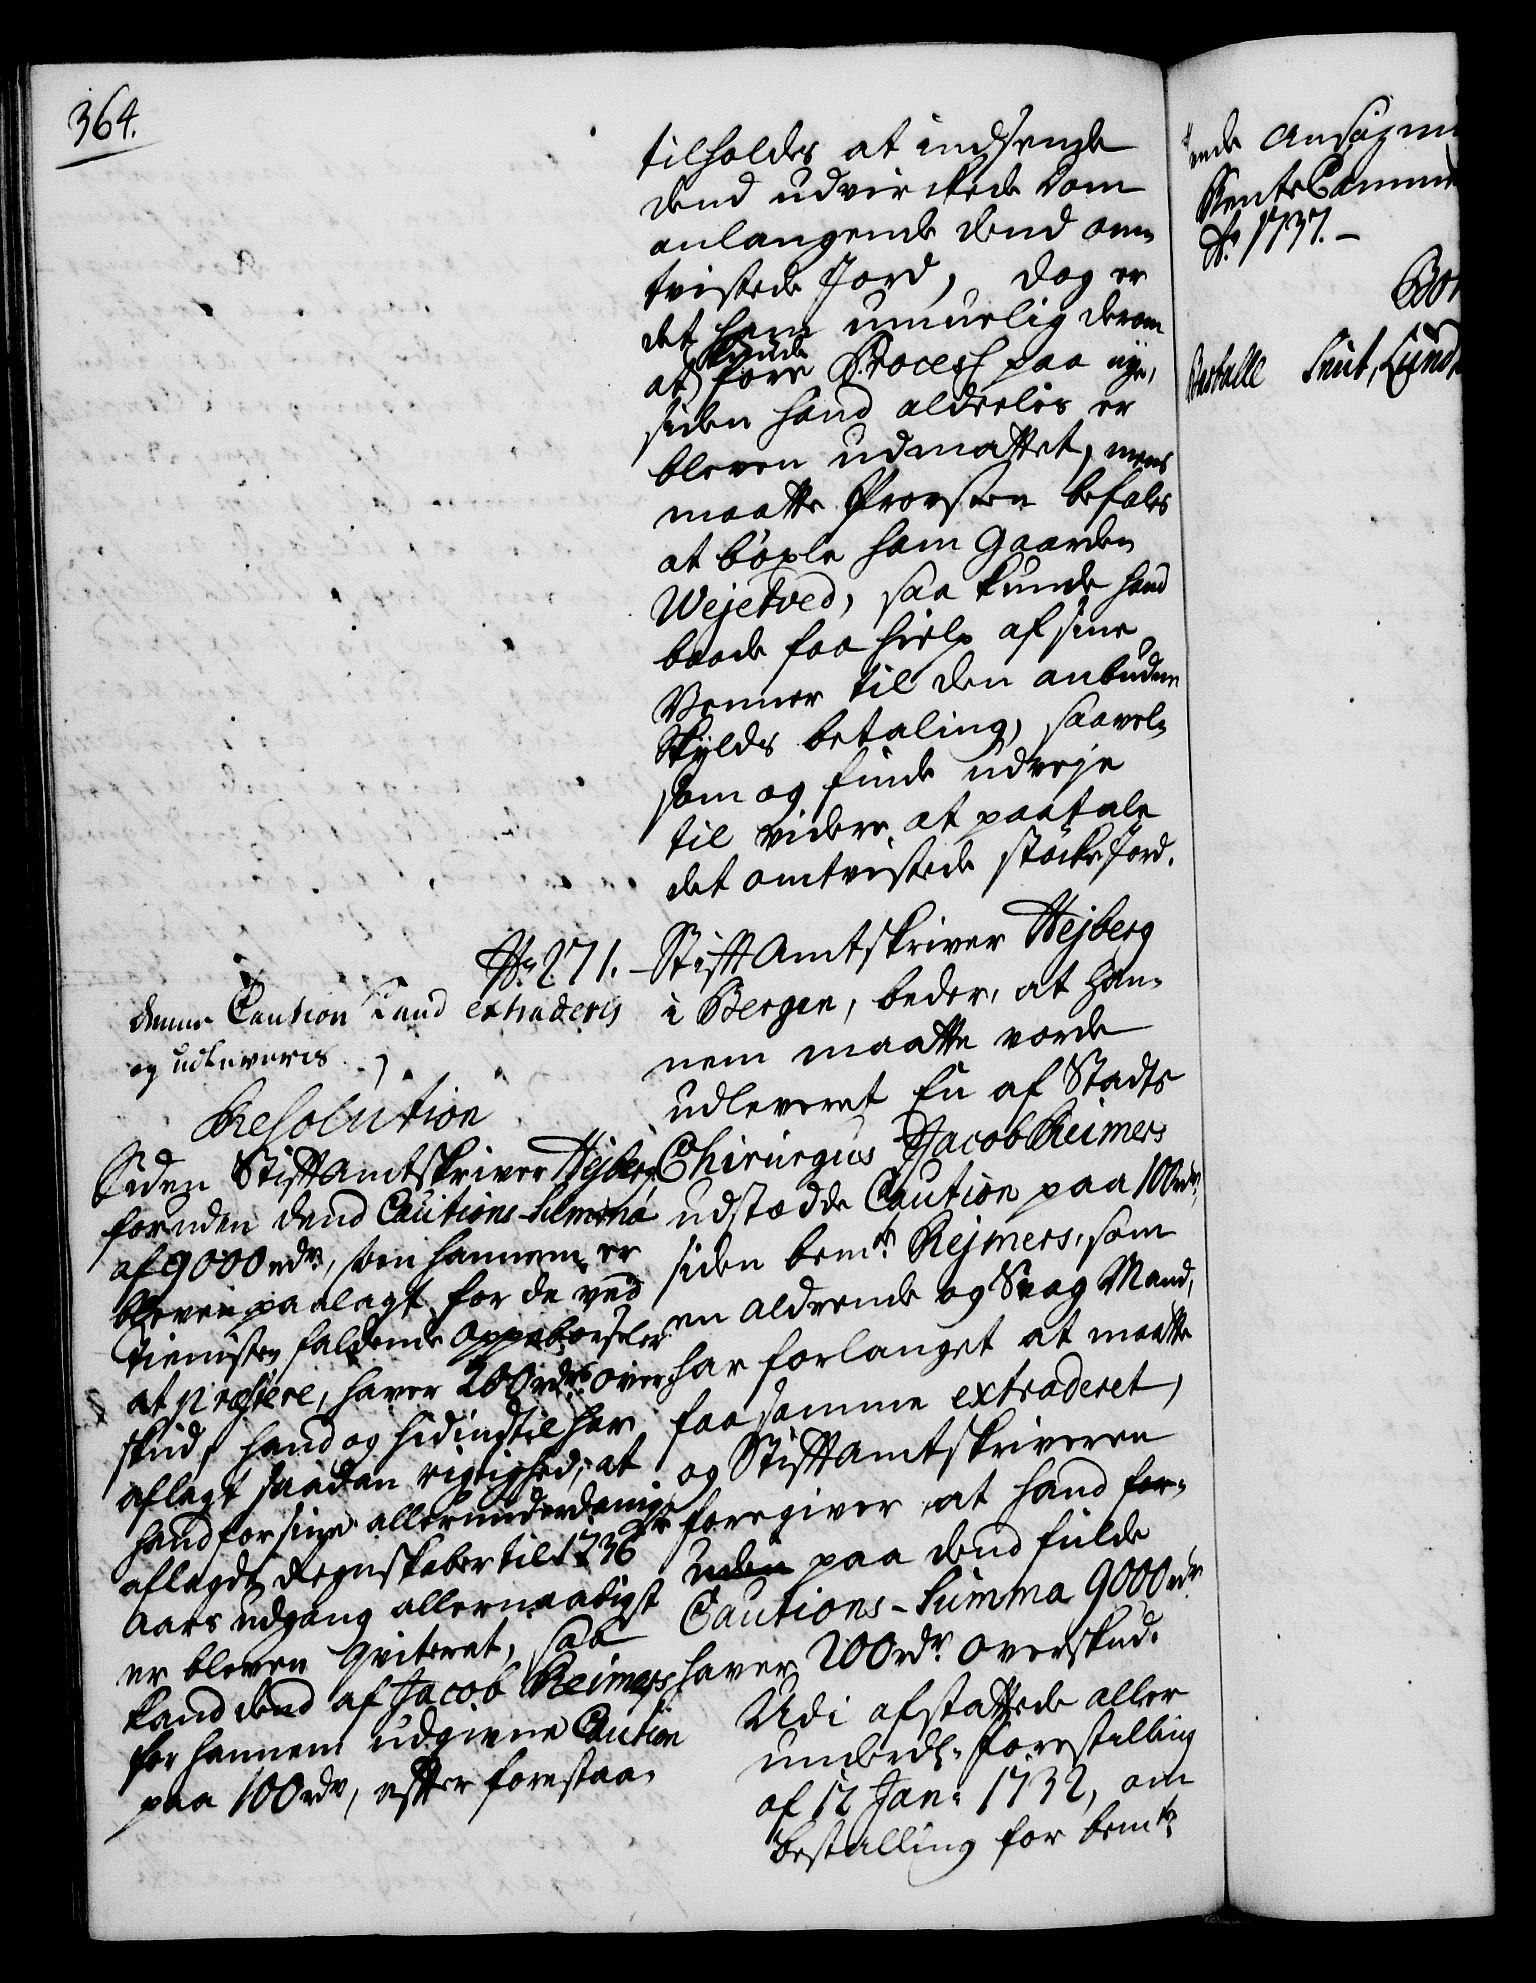 364.
tilholdes at indsende
dend udvirckede Dom
anlangende dend om-
tvistede Jord, dog er
det ham umuelig derom
at kunde føre Process paa nye,
siden hand alderlis er
bleven udmattet, mens
maatte Provsten befales
at böxle ham Gaarden
Wejetved, saa kunde hand
baade faa hielp af sine
Venner til den anbudne
Skylds betaling, saavel-
som og finde udveje
til videre at paatale
det omtvistede støcke Jord.
No. 271. Stiftamtskriver Hejberg
i Bergen, beder, at han-
nem maatte vorde
udleveret En af Stads
Chirurgus Jacob Reimers
udstædde Caution paa 100 rdr.
siden bemte. Rejmers, som
en aldrende og Svag Mand,
har forlanget at maatte
faa samme extraderet,
og Stiftamtskriveren
foregiver at hand for-
uden paa dend fulde
Cautions-Summa 9000 rdr
haver 200 rdr. overskud.
Udi afstattede aller
underdl. Forestilling
af 12 Jan. 1732, om
bestalling for bemte.
denne Caution Kand extraderis
og udleveris.
Resolution
Siden Stiftamtskriver Hejberg
foruden dend Cautions-Summa
af 9000 rdr., som hannem er
bleven paalagt for de ved
Tienisten faldende Oppebørseler
at præstere, haver 200 rdrs. over-
skud, hand og hidindtil har
aflagt saadan rigtighed, at
hand for sine allerunderdanigst
aflagde Regnskaber til 1736
Aars udgang allernaadigst
er bleven Qviteret, saa
kand dend af Jacob Reimers
for hannem udgivne Caution
paa 100 rdr, efter forestaa-
ende Ansøgni
RenteCamme
Ao. 1737.